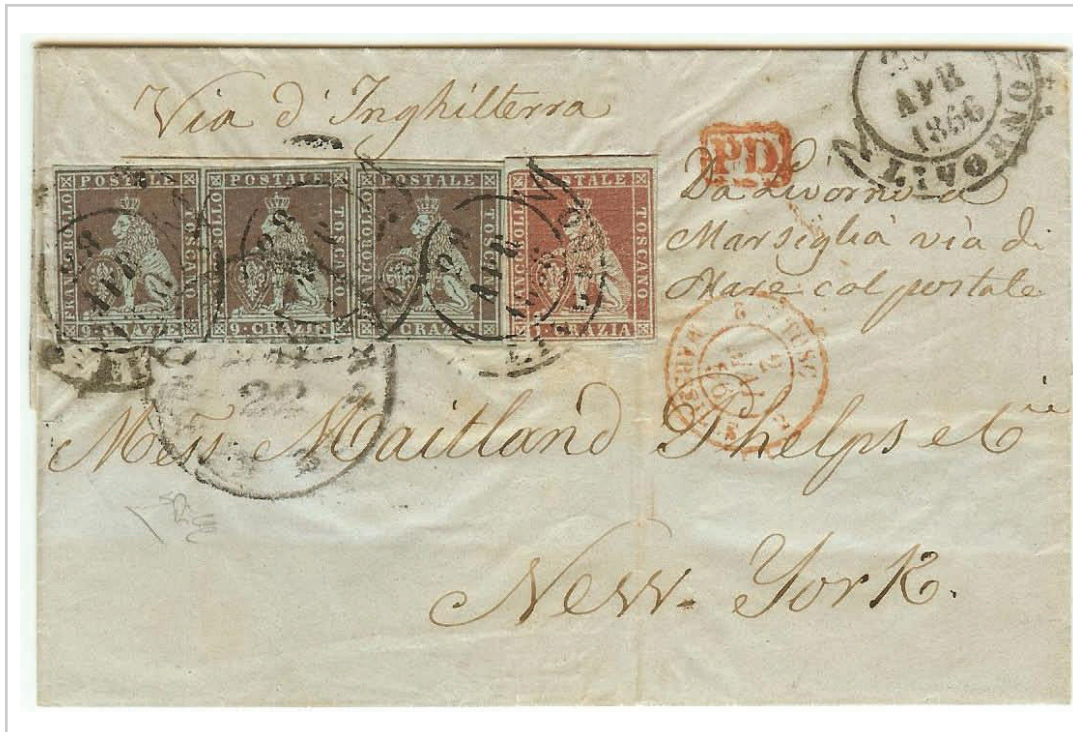 Via d'Inghilterra
PD
APR
1856
LIVORNO
Da Livorno a
Marsiglia via di
Mare col postale
FRANCOBOLLO POSTALE TOSCANO
9·CRAZIE
FRANCOBOLLO POSTALE TOSCANO
9·CRAZIE
FRANCOBOLLO POSTALE TOSCANO
CRAZIE
FRANCOBOLLO POSTALE TOSCANO
1·CRAZIA
28
APR
28
28
APR
TOSC.
MARSEILLE
22
Mess Maitland Phelps et Cie
New-York.